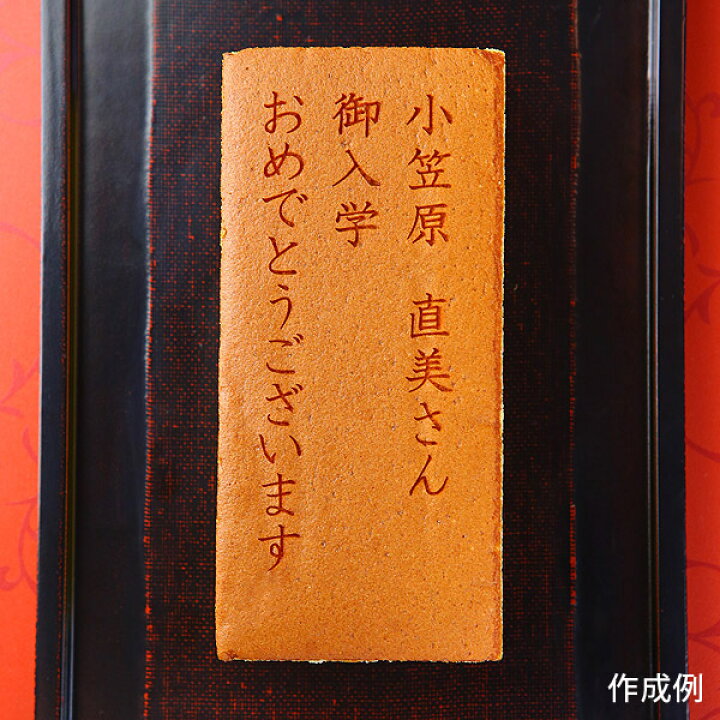 小笠原 直美さん
御入学
おめでとうございます
作成例